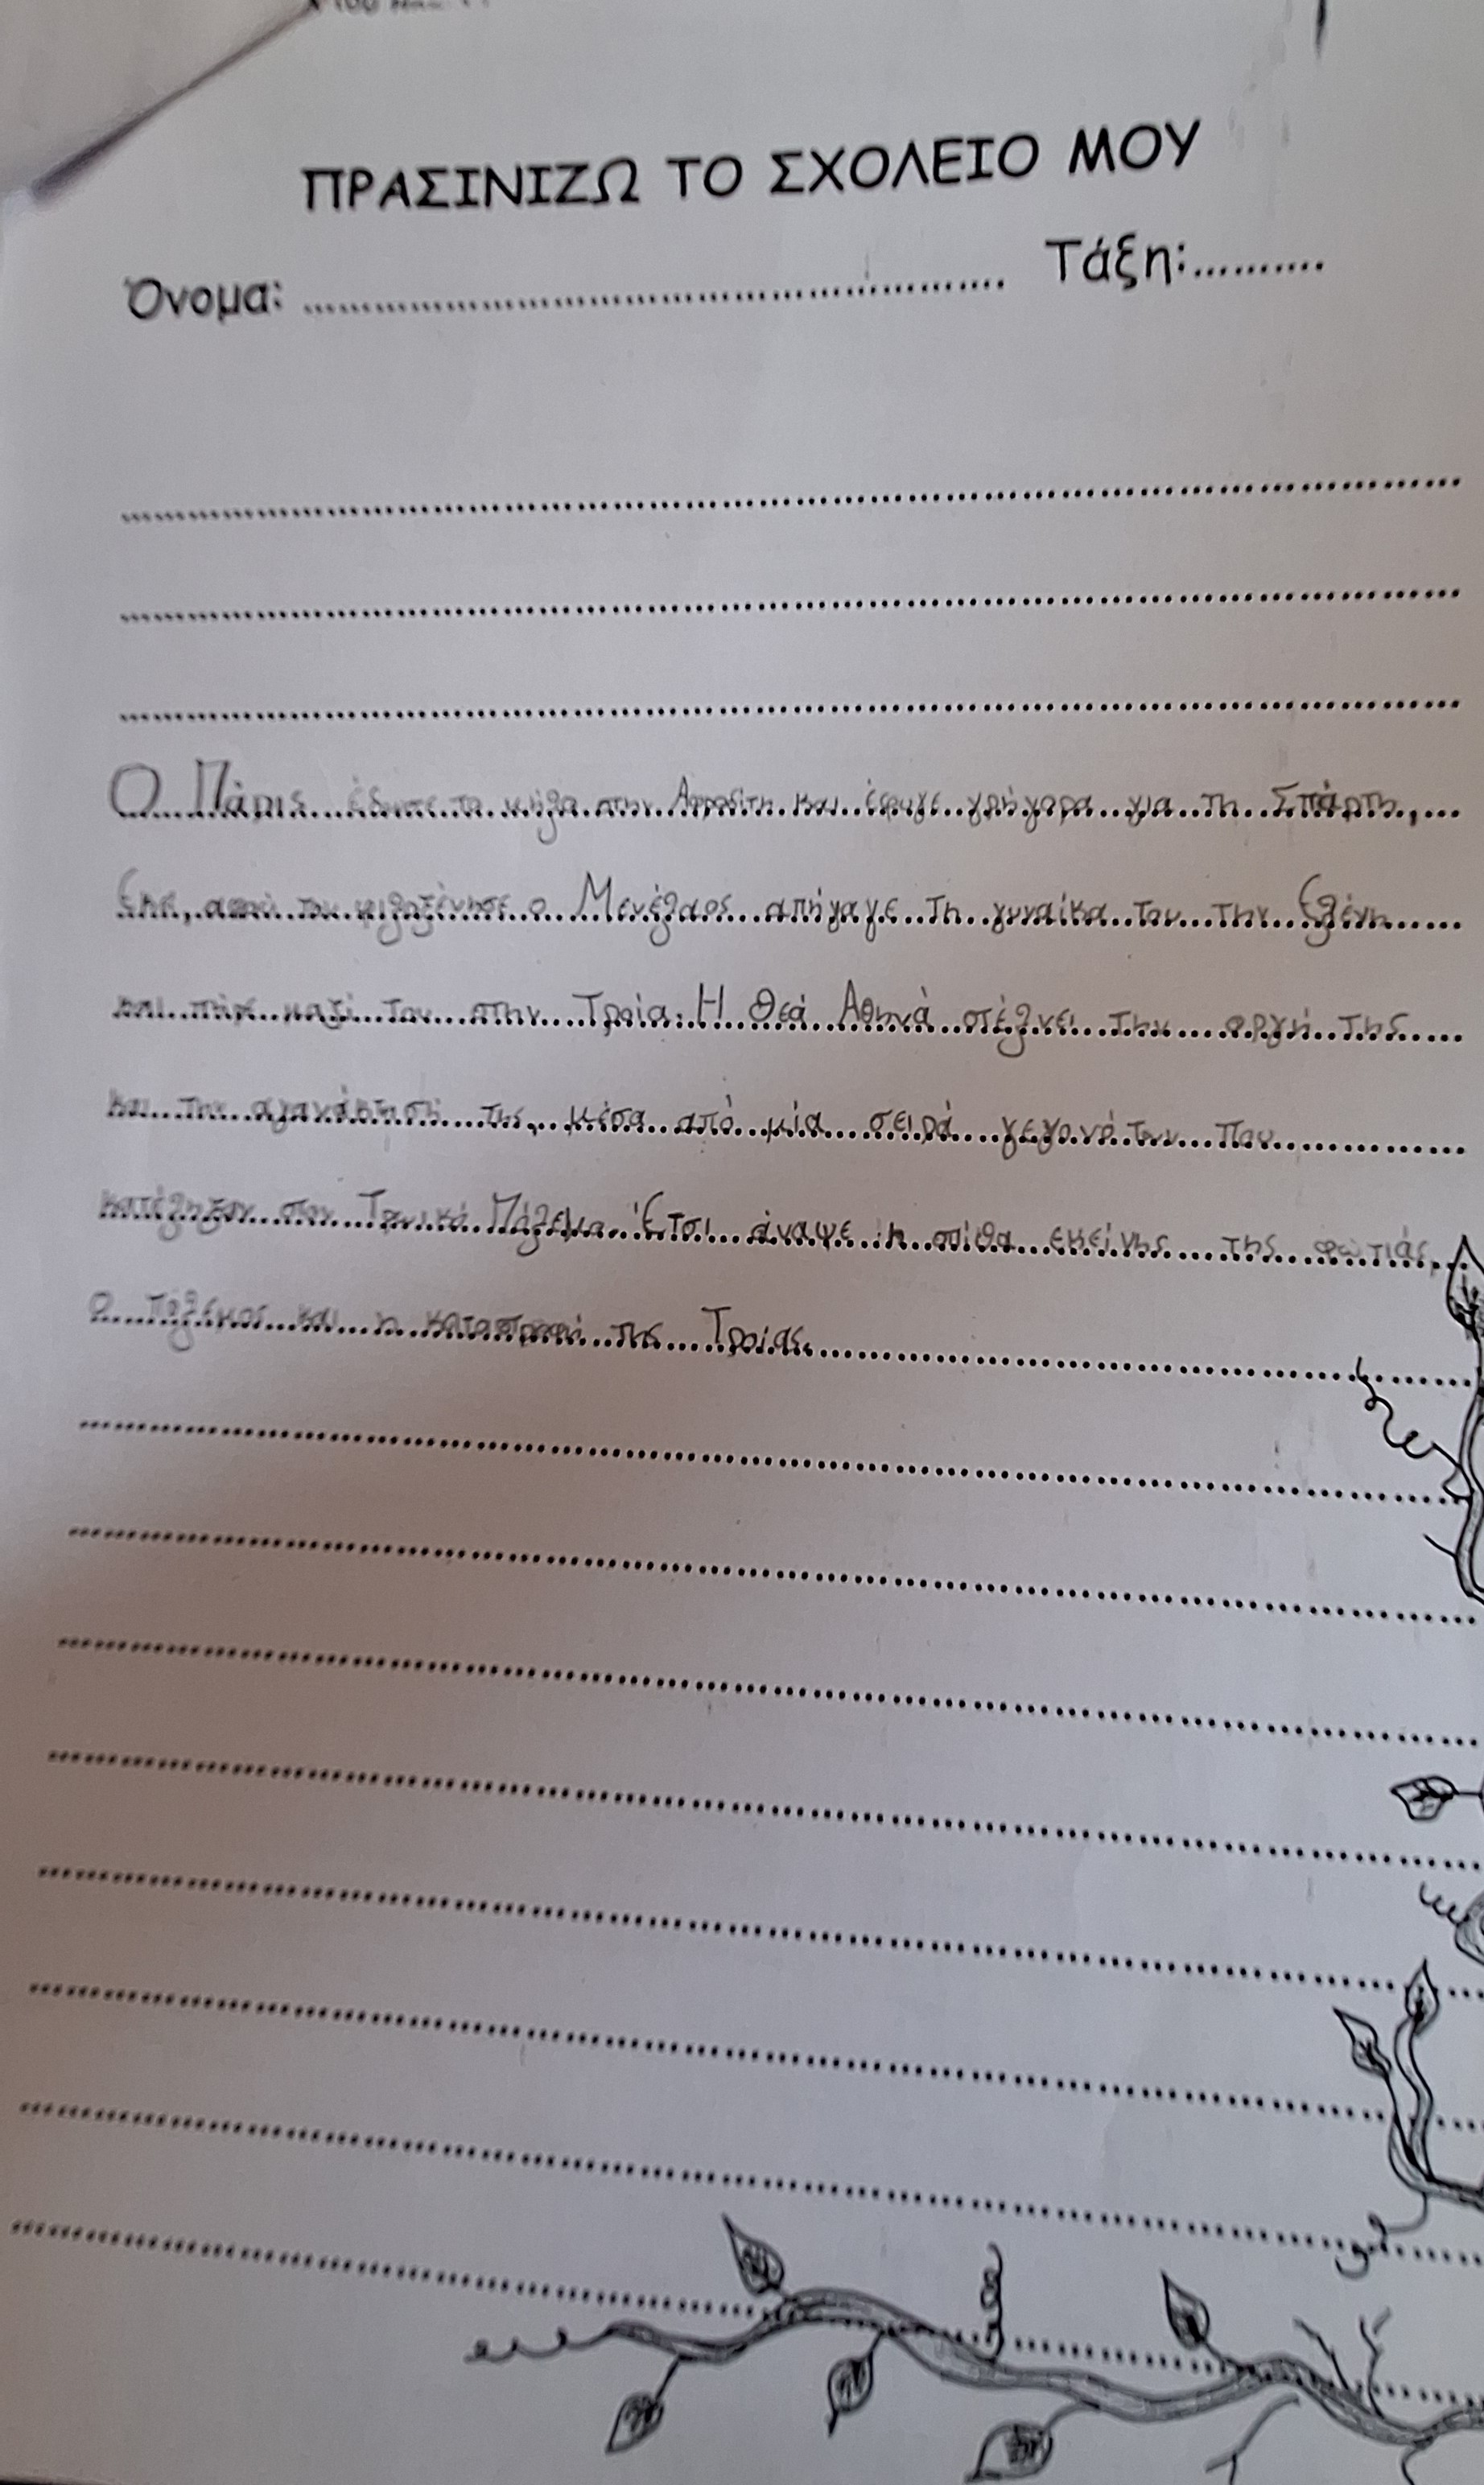 ΠΡΑΣΙΝΙΖΩ ΤΟ ΣΧΟΛΕΙΟ ΜΟΥ
Όνομα: ................ Τάξη: ..........
Ο Πάρις έδωσε το μήλο στην Αφροδίτη και έφυγε γρήγορα για τη Σπάρτη,
Εκεί, αφού τον φιλοξένησε ο Μενέλαος απήγαγε τη γυναίκα του την Ελένη
και πήρε μαζί του στην Τροία. Η Θεά Αθηνά στέλνει την οργή της
και την αγανάκτησή της, μέσα από μία σειρά γεγονότων που
κατέληξαν στον Τρωικό Πόλεμο. Έτσι άναψε η σπίθα εκείνης της φωτιάς,
ο πόλεμος και η καταστροφή της Τροίας.